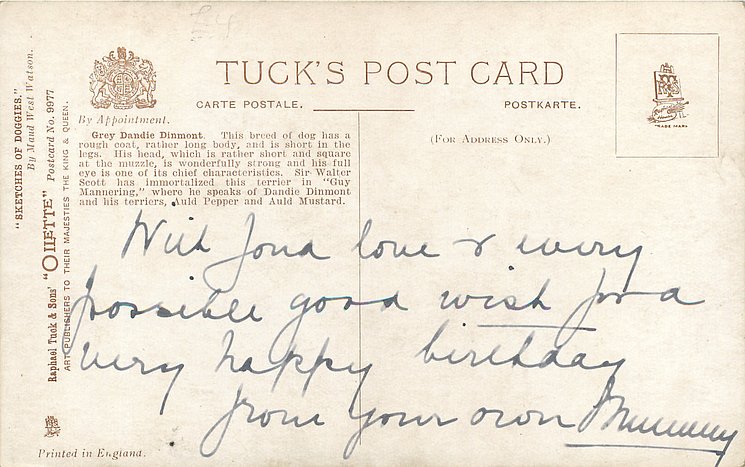 £4
TUCK'S POST CARD
CARTE POSTALE.
POSTKARTE.
By Appointment.
(FOR ADDRESS ONLY.)
Grey Dandie Dinmont. This breed of dog has a
rough coat, rather long body, and is short in the
legs. His head, which is rather short and square
at the muzzle, is wonderfully strong and his full
eye is one of its chief characteristics. Sir Walter
Scott has immortalized this terrier in "Guy
Mannering," where he speaks of Dandie Dinmont
and his terriers, Auld Pepper and Auld Mustard.
"SKETCHES OF DOGGIES."
By Maud West Watson.
Raphael Tuck & Sons' "OILETTE" Postcard No. 9977
ART PUBLISHERS TO THEIR MAJESTIES THE KING & QUEEN.
TRADE MARK
With fond love & every
possible good wish for a
very happy birthday
from your own Mummy
Printed in England.